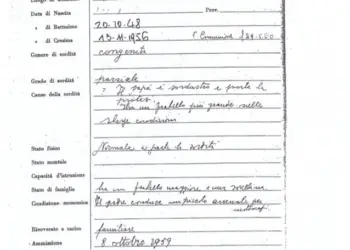 Prov.
Data di Nascita
" di Battesimo 20.10.48
" di Cresima 13-11-1956 1ª Comunione
Genere di sordità congenita
Grado di sordità parziale
Cause della sordità Il papà è sordastro e porta la
Ha un fratello più grande nelle
stesse condizioni
Stato fisico Normale
Stato mentale
Capacità d'istruzione
Stato di famiglia ha un fratello maggiore e una sorellina
Condizione economica Il padre conduce un piccolo
Ricoverato a carico familiare
Ammissione 8 ottobre 1959